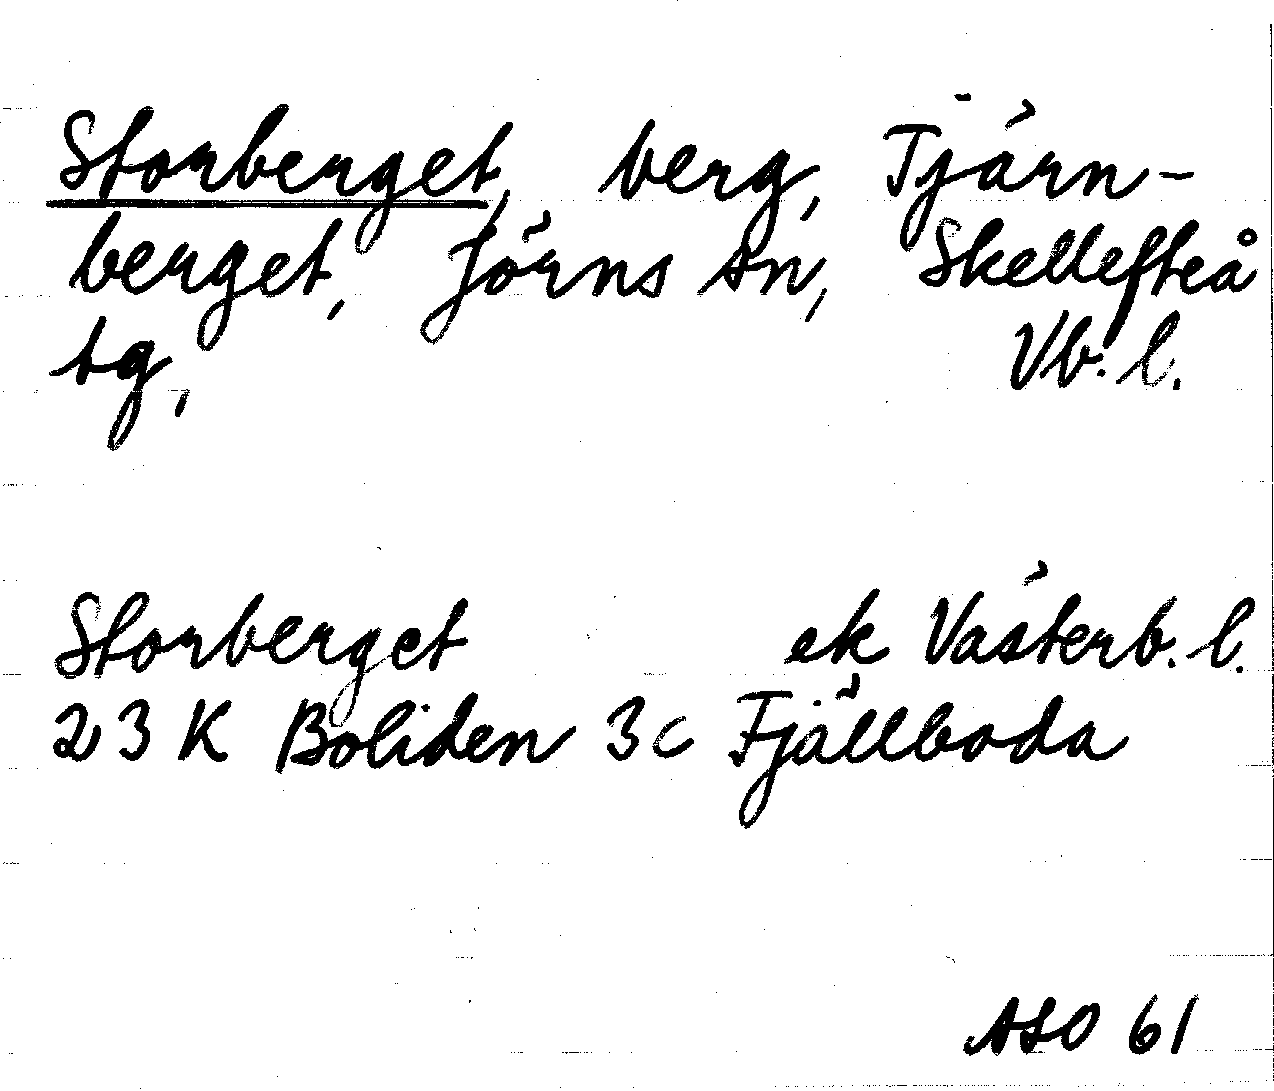 Storberget, berg, Tjärn-
berget, Jörns sn, Skellefteå
tg, Vb. l.
Storberget ek Västerb. l.
23 K Boliden 3c Fjällboda
ASO 61